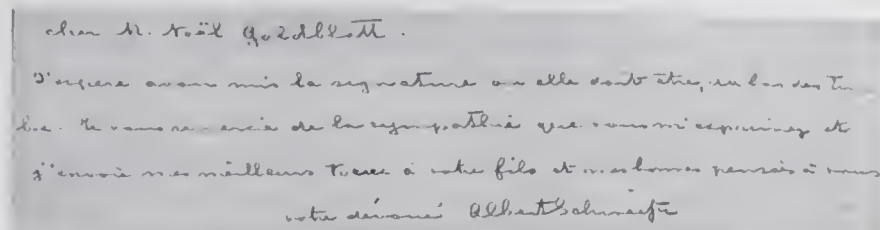 cher M. Noël Goldblatt.
J'espère avoir mis la signature ou elle doit être, en bas des Tim
bre. Je vous remercie de la sympathie que vous m'exprimez et
j'envoie mes meilleurs vœux à votre fils et mes bonnes pensées à vous
votre dévoué Albert Schweitzer